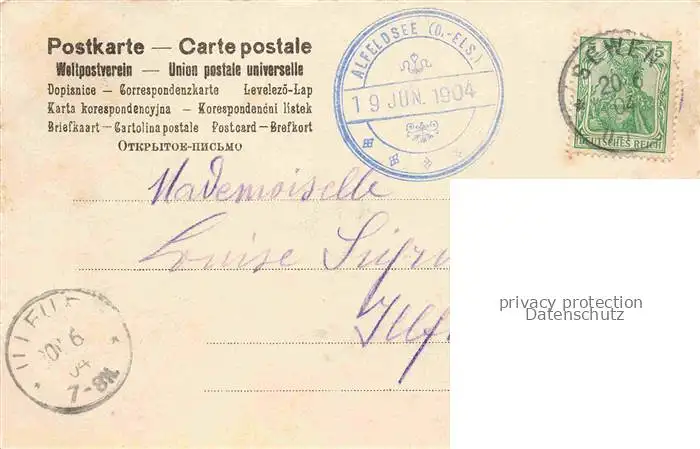 Postkarte — Carte postale
Weltpostverein — Union postale universelle
Dopisnice — Correspondenzkarte Levelező-Lap
Karta korespondencyjna — Korespondenčni listek
Briefkaart — Cartolina postale Postcard — Brefkort
ОТКРЫТОЕ-ПИСЬМО
ALFELDSEE (O.-ELS.)
19 JUN. 1904
SEWEN
20 6
04
5
DEUTSCHES REICH
Mademoiselle
Louise
privacy protection
Datenschutz
6
04
7-8N.